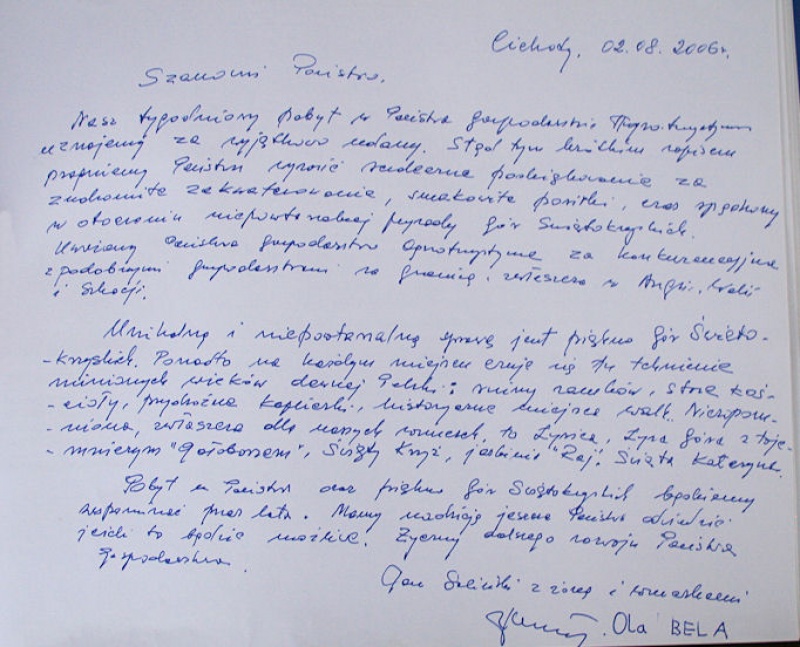 Cichoty, 02.08.2006r.
Szanowni Państwo.
Nasz tygodniowy pobyt w Państwa gospodarstwie Agroturystycznym
uznajemy za wyjątkowo udany. Stąd tym krótkim wpisem
pragniemy Państwu wyrazić serdeczne podziękowania za
znakomite zakwaterowanie, smakowite posiłki, oraz spędzony
w otoczeniu niepowtarzalnej przyrody Gór Świętokrzyskich.
Uważamy Państwa gospodarstwo Agroturystyczne za konkurencyjne
z podobnymi gospodarstwami za granicą, zwłaszcza w Anglii, Walii
i Szkocji.
Unikalną i niepowtarzalną sprawą jest piękno Gór Święto-
-krzyskich. Ponadto na każdym miejscu czuje się tu tchnienie
minionych wieków dawnej Polski: ruiny zamków, stare koś-
-cioły, przydrożne kapliczki, historyczne miejsca walk. Niezapom-
-niana, zwłaszcza dla naszych wnuczek, to Łysica, Łysa Góra z taje-
-mniczym "Gołoborzem", Święty Krzyż, jaskinia "Raj", Święta Katarzyna.
Pobyt u Państwa oraz piękno Gór Świętokrzyskich będziemy
wspominać przez lata. Mamy nadzieję jeszcze Państwa odwiedzić
jeśli to będzie możliwe. Życzymy dalszego rozwoju Państwa
Gospodarstwa.
Jan z żoną i wnuczkami
Ola BELA